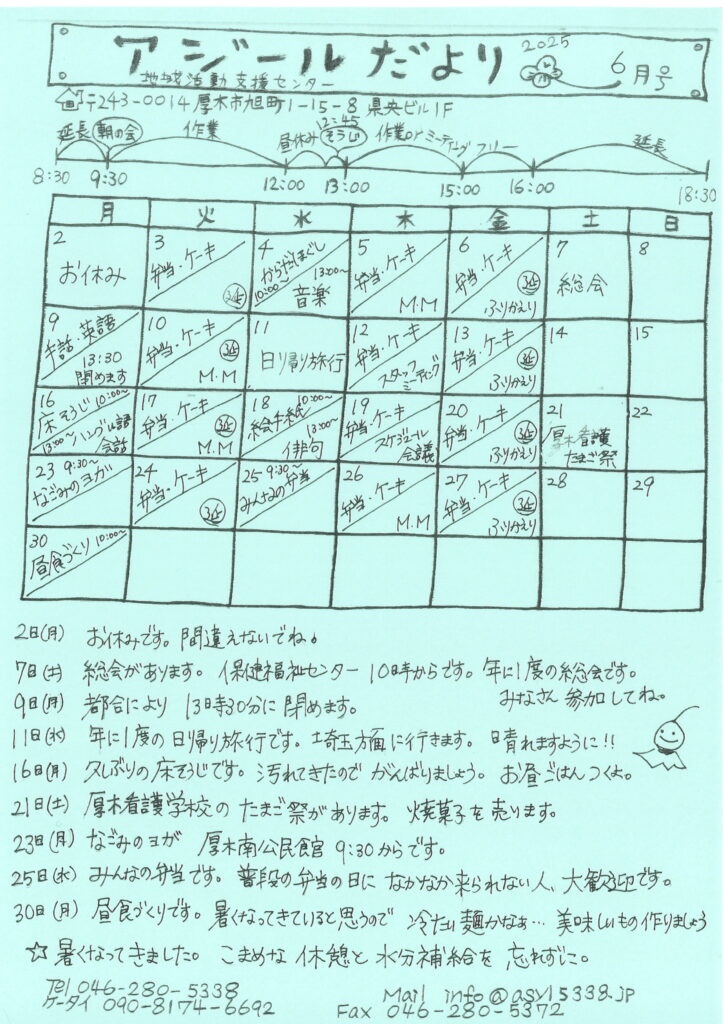 アジールだより
2025
6月号
地域活動支援センター
〒243-0014 厚木市旭町1-15-8 県央ビル1F
延長 朝の会 作業 昼休み 12:45 そうじ 作業orミーティング フリー 延長
8:30 9:30 12:00 13:00 15:00 16:00 18:30
月 火 水 木 金 土 日
2 お休み
3 弁当・ケーキ
4 からだほぐし 10:00~ 13:00~ 音楽
5 弁当・ケーキ M.M
6 弁当・ケーキ ふりかえり
7 総会
8
9 手話・英語 13:30 閉めます
10 弁当・ケーキ M.M
11 日り帰り旅行
12 弁当・ケーキ スタッフミーティング
13 弁当・ケーキ ふりかえり
14
15
16 床そうじ 10:00~ 13:00~ ハングル語会話
17 弁当・ケーキ M.M
18 絵手紙 10:00~ 13:00~ 俳句
19 弁当・ケーキ スケジュール会議
20 弁当・ケーキ ふりかえり
21 厚木看護たまご祭
22
23 9:30~ なごみのヨガ
24 弁当・ケーキ
25 9:30~ みんなの弁当
26 弁当・ケーキ M.M
27 弁当・ケーキ ふりかえり
28
29
30 昼食づくり 10:00~
2日(月) お休みです。間違えないでね。
7日(土) 総会があります。保健福祉センター 10時からです。年に1度の総会です。
みなさん 参加してね。
9日(月) 都合により 13時30分に閉めます。
11日(水) 年に1度の日り帰り旅行です。埼玉方面に行きます。晴れますように!!
16日(月) 久しぶりの床そうじです。汚れてきたので がんばりましょう。お昼ごはんつくよ。
21日(土) 厚木看護学校の たまご祭があります。焼菓子を売ります。
23日(月) なごみのヨガ 厚木南公民館 9:30からです。
25日(水) みんなの弁当です。普段の弁当の日に なかなか来られない人、大歓迎です。
30日(月) 昼食づくりです。暑くなってきていると思うので 冷たい麺かなぁ… 美味しいもの作りましょう
☆暑くなってきました。こまめな 休憩と 水分補給を 忘れずに。
Tel 046-280-5338
ケータイ 090-8174-6692
Mail info@asyl5338.jp
Fax 046-280-5372